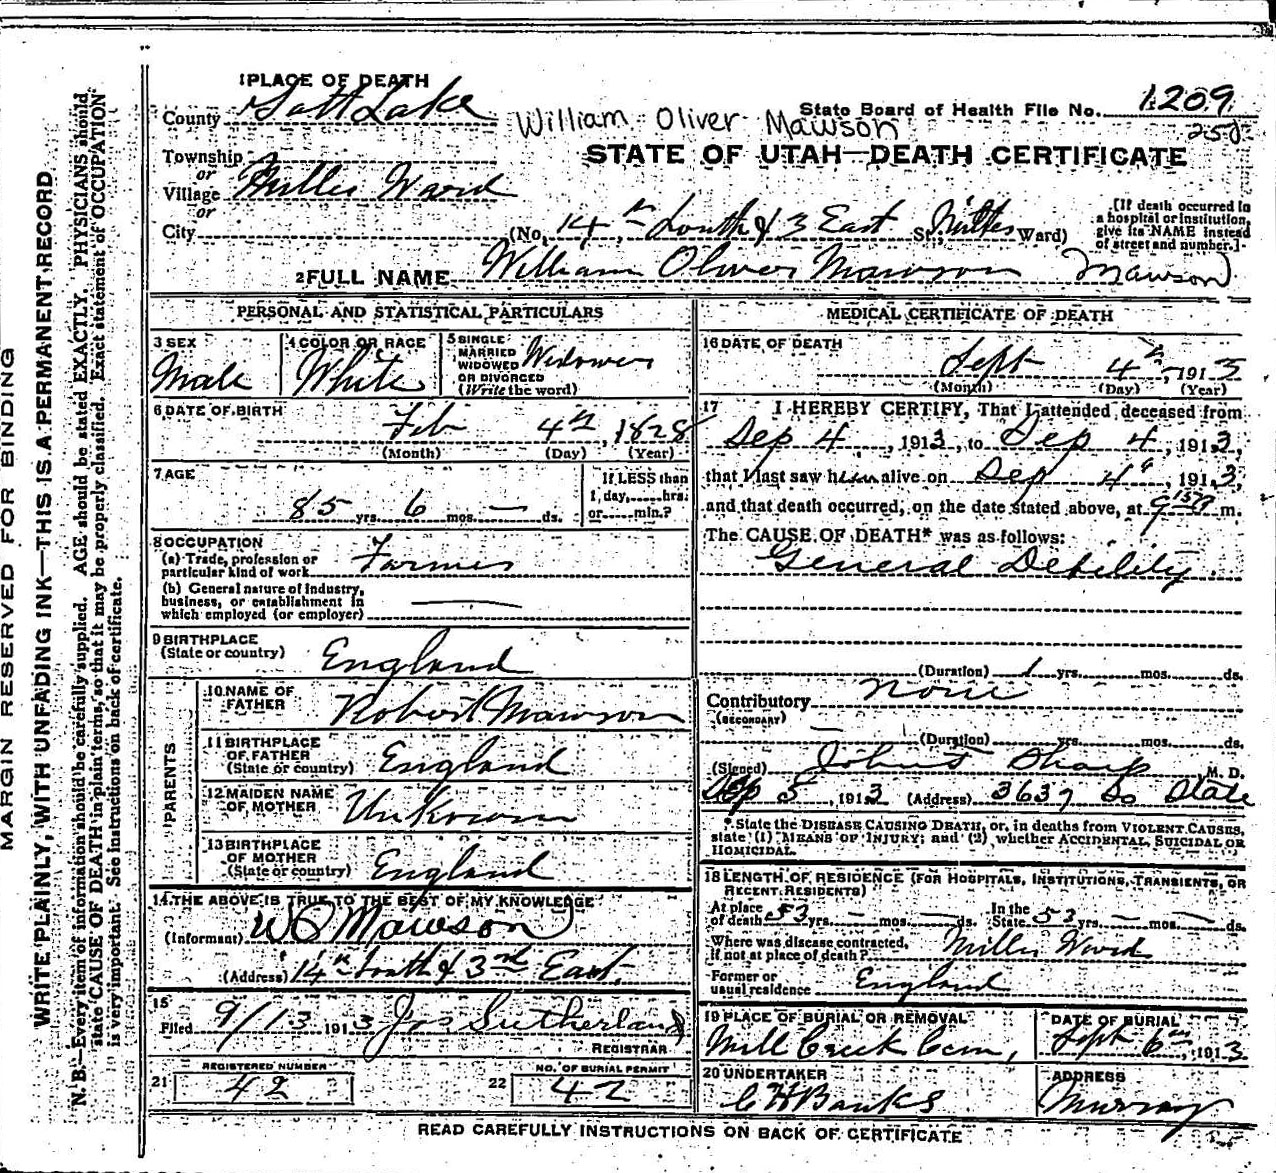 1 PLACE OF DEATH
County Salt Lake
State Board of Health File No. 1209
William Oliver Mawson
258
STATE OF UTAH—DEATH CERTIFICATE
Township
or
Village Miller Ward
or
City (No. 14th South & 3 East St., Miller Ward)
[If death occurred in a hospital or institution, give its NAME instead of street and number.]
2 FULL NAME William Oliver Mawson (Mawson)
PERSONAL AND STATISTICAL PARTICULARS
3 SEX
Male
4 COLOR OR RACE
White
5 SINGLE
MARRIED
WIDOWED
OR DIVORCED
(Write the word)
Widower
6 DATE OF BIRTH
Feb 4th, 1828
(Month) (Day) (Year)
7 AGE
85 yrs. 6 mos. — ds.
If LESS than
1, day, hrs.
or min.?
8 OCCUPATION
(a) Trade, profession or
particular kind of work Farmer
(b) General nature of industry,
business, or establishment in
which employed (or employer) —
9 BIRTHPLACE
(State or country) England
PARENTS
10 NAME OF
FATHER Robert Mawson
11 BIRTHPLACE
OF FATHER
(State or country) England
12 MAIDEN NAME
OF MOTHER Unknown
13 BIRTHPLACE
OF MOTHER
(State or country) England
14 THE ABOVE IS TRUE TO THE BEST OF MY KNOWLEDGE
(Informant) W O Mawson
(Address) 14th South & 3rd East
15
Filed 9/13 1913 Jos Sutherland
REGISTRAR
21 REGISTERED NUMBER
42
22 NO. OF BURIAL PERMIT
42
MEDICAL CERTIFICATE OF DEATH
16 DATE OF DEATH
Sept 4th, 1913
(Month) (Day) (Year)
17 I HEREBY CERTIFY, That I attended deceased from
Sep 4, 1913, to Sep 4, 1913,
that I last saw him alive on Sep 4", 1913,
and that death occurred, on the date stated above, at m.
The CAUSE OF DEATH* was as follows:
General Debility
(Duration) 1 yrs. mos. ds.
Contributory none
(SECONDARY)
(Duration) yrs. mos. ds.
(Signed) Sharp M. D.
Sep 5, 1913 (Address) 3637 So State
*State the DISEASE CAUSING DEATH, or, in deaths from VIOLENT CAUSES,
state (1) MEANS OF INJURY; and (2) whether ACCIDENTAL, SUICIDAL OR
HOMICIDAL.
18 LENGTH OF RESIDENCE (FOR HOSPITALS, INSTITUTIONS, TRANSIENTS, OR
RECENT RESIDENTS)
At place
of death 53 yrs. — mos. — ds. In the
State 53 yrs. — mos. — ds.
Where was disease contracted,
if not at place of death? Miller Ward
Former or
usual residence England
19 PLACE OF BURIAL OR REMOVAL
Mill Creek Cem,
DATE OF BURIAL
Sept 6th, 1913
20 UNDERTAKER
C H Banks
ADDRESS
Murray
READ CAREFULLY INSTRUCTIONS ON BACK OF CERTIFICATE
MARGIN RESERVED FOR BINDING
WRITE PLAINLY, WITH UNFADING INK—THIS IS A PERMANENT RECORD
N. B.—Every item of information should be carefully supplied. AGE should be stated EXACTLY. PHYSICIANS should
state CAUSE OF DEATH in plain terms, so that it may be properly classified. Exact statement of OCCUPATION
is very important. See instructions on back of certificate.